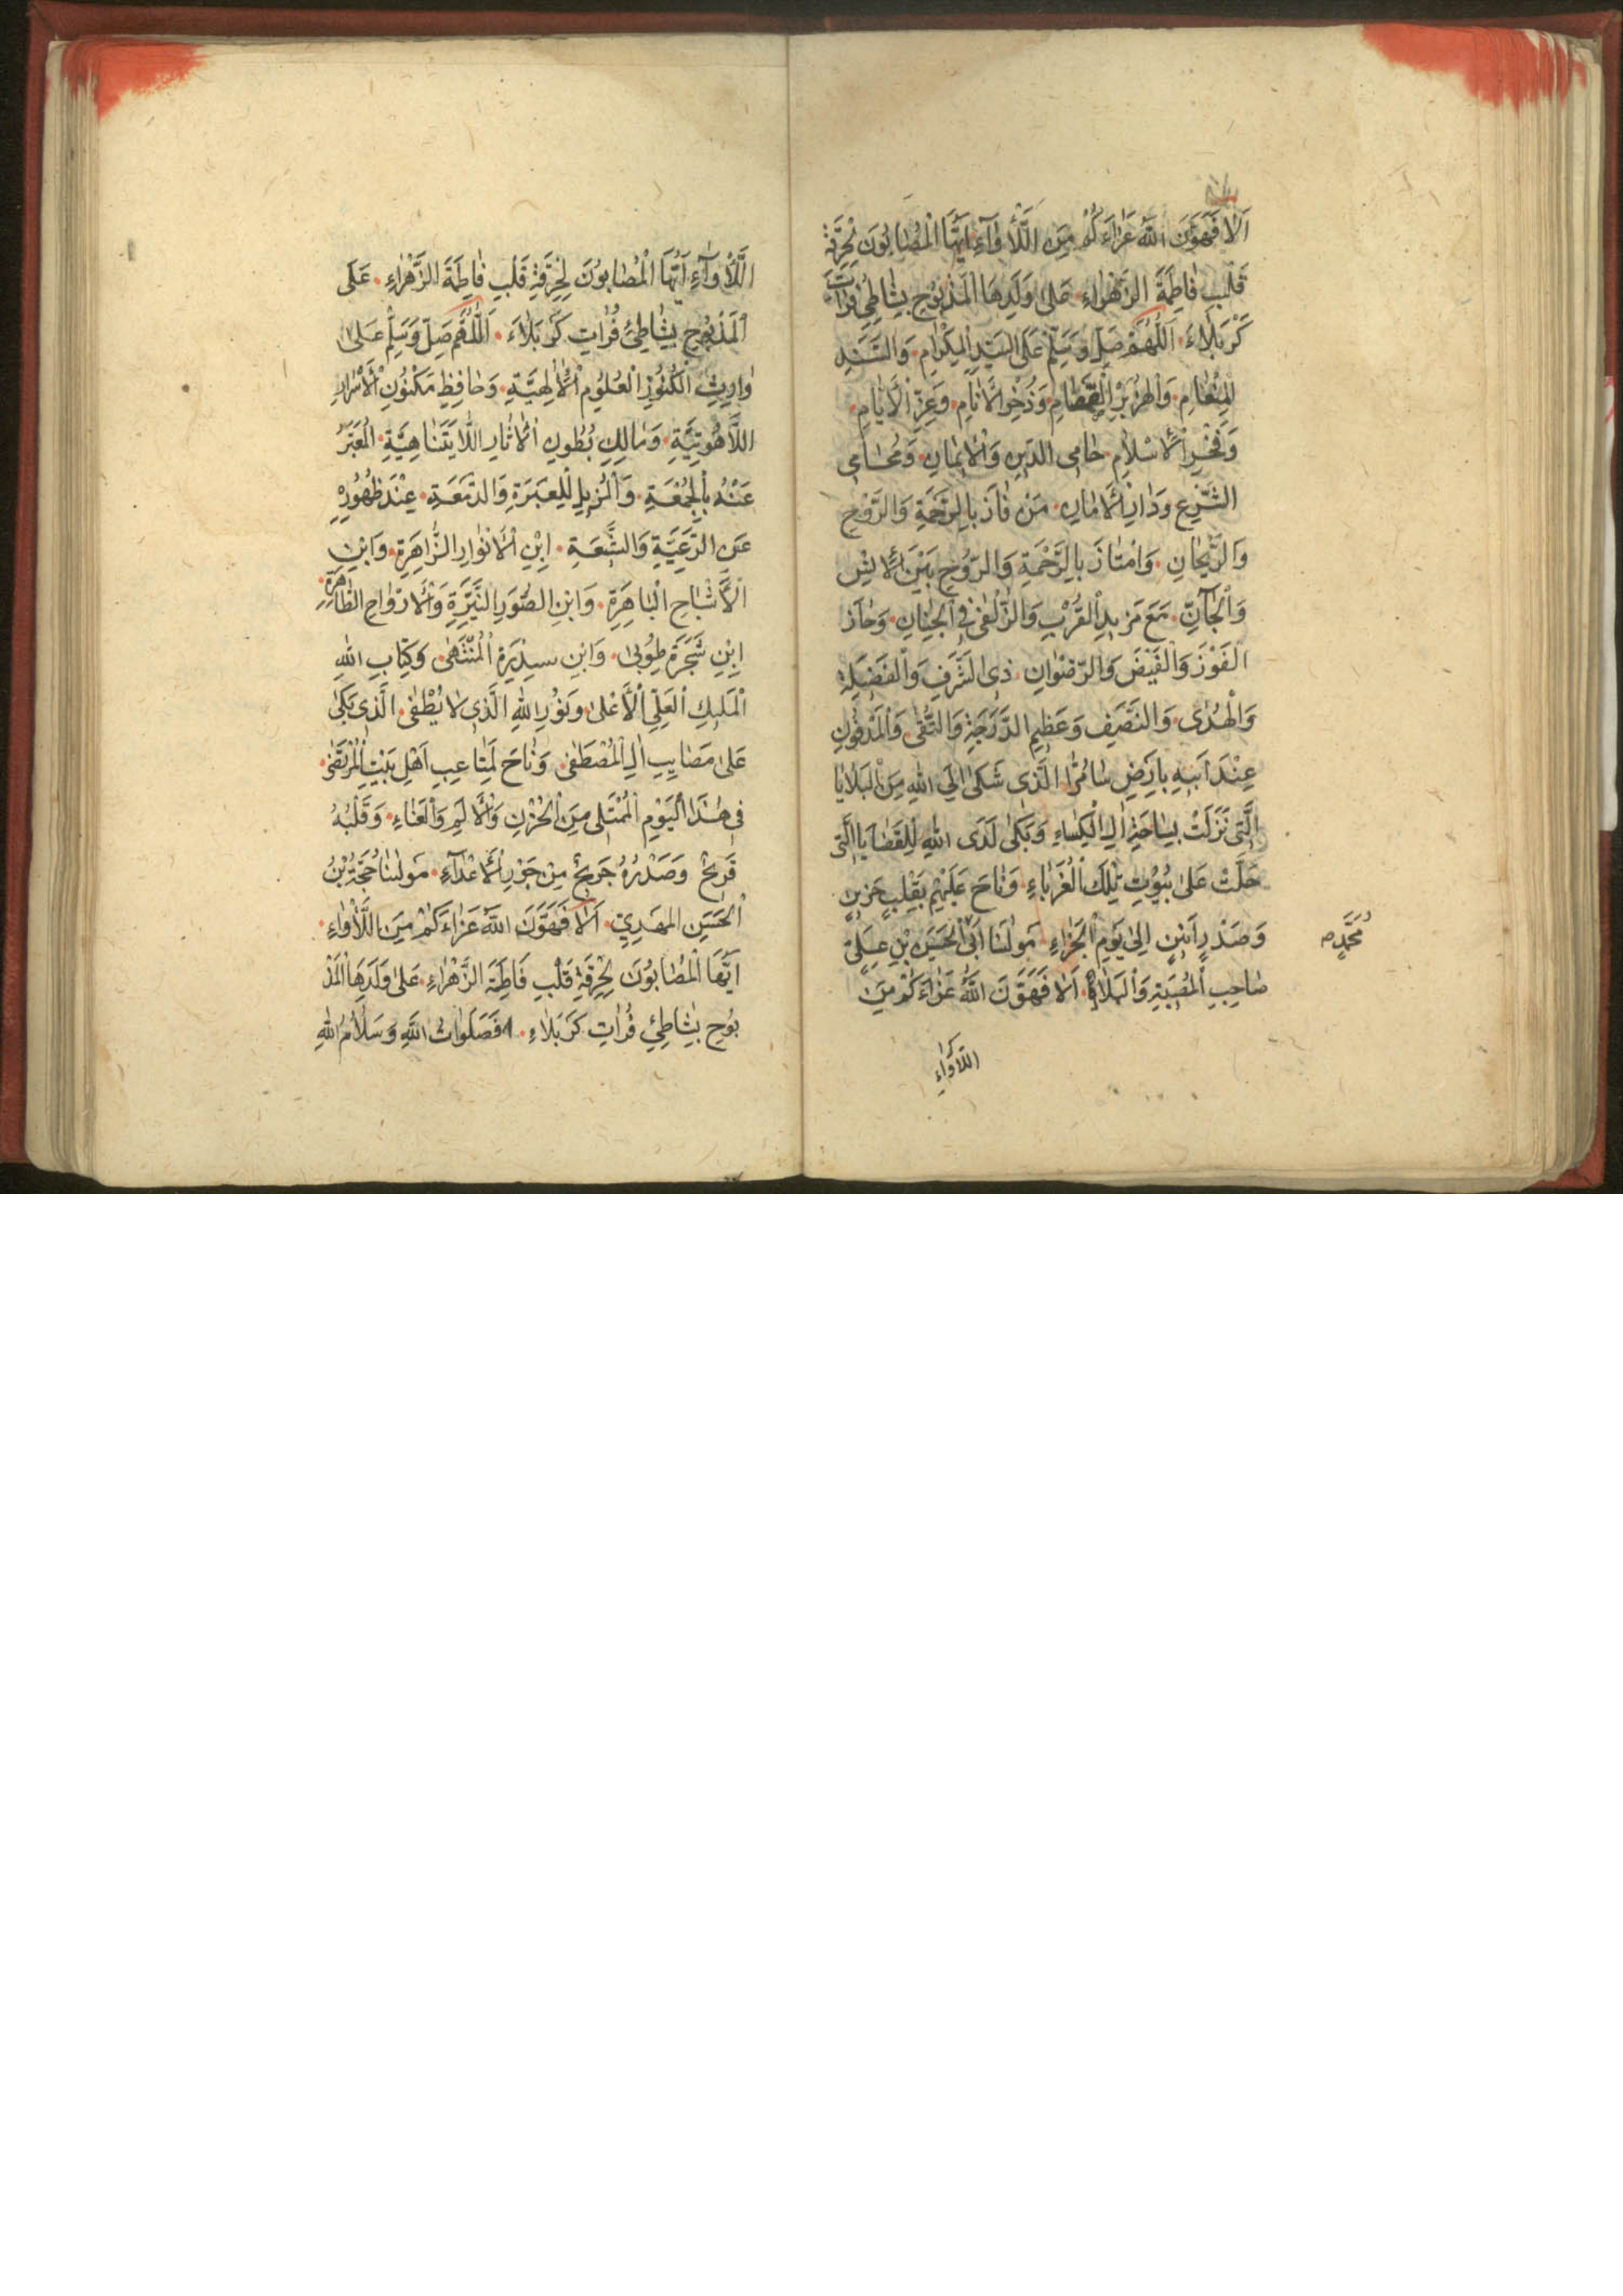 اَلٰا فَهَوَّنَ اللّٰهُ عَزٰاءَكُمْ مِنَ اللَّأْوٰآءِ اَيُّهَا الْمُصٰابُونَ لِحُرْقَةِ
قَلْبِ فٰاطِمَةَ الزَّهْرٰاءِ عَلٰى وَلَدِهَا الْمَذْبُوحِ بِشٰاطِئِ فُرٰاتِ
كَرْبَلٰاءَ اَللّٰهُمَّ صَلِّ وَسَلِّمْ عَلَى السَّيِّدِ الْكِرٰامِ وَالسَّنَدِ
الْمِنْعٰامِ وَالْهِزَبْرِ الْقَمْقٰامِ وَذُخْرِ الْاَنٰامِ وَعِزِّ الْاَيّٰامِ
وَفَخْرِ الْاِسْلٰامِ حٰامِى الدِّينِ وَالْاِيمٰانِ وَمُحٰامِى
الشَّرْعِ وَدٰارِ الْاَمٰانِ مَنْ فٰازَ بِالرَّحْمَةِ وَالرَّوْحِ
وَالرَّيْحٰانِ وَامْتٰازَ بِالرَّحْمَةِ وَالرُّوحِ بَيْنَ الْاِنْسِ
وَالْجٰآنِّ مَعَ مَزِيدِ الْقُرْبِ وَالزُّلْفٰى فِى الْجِنٰانِ وَحٰازَ
الْفَوْزَ وَالْفَيْضَ وَالرِّضْوٰانِ ذِى الشَّرَفِ وَالْفَضِيلَةِ
وَالْهُدٰى وَالنَّصَفِ وَعَظِيمِ الدَّرَجَةِ وَالتُّقٰى وَالْمَدْفُونِ
عِنْدَ اَبِيهِ بِاَرْضِ سٰامُرّٰا الَّذِى شَكٰى اِلَى اللّٰهِ مِنَ الْبَلٰايٰا
الَّتِى نَزَلَتْ بِسٰاحَةِ اٰلِ الْكِسٰاءِ وَبَكٰى لَدَى اللّٰهِ لِلْقَضٰايَا الَّتِى
حَلَّتْ عَلٰى بُيُوتِ تِلْكَ الْغُرَبٰاءِ وَنٰاحَ عَلَيْهِمْ بِقَلْبٍ حَزِينٍ
وَصَدْرٍ اَنِينٍ اِلٰى يَوْمِ الْجَزٰاءِ مَوْلٰنَا اَبِى الْحَسَنِ بْنِ عَلِىِّ
مُحَمَّدٍ
صٰاحِبِ الْمُصِيبَةِ وَالْبَلٰاءِ اَلٰا فَهَوَّنَ اللّٰهُ عَزٰاءَكُمْ مِنَ
اللَّأْوٰاءِ
اللَّأْوٰآءِ اَيُّهَا الْمُصٰابُونَ لِحُرْقَةِ قَلْبِ فٰاطِمَةَ الزَّهْرٰاءِ عَلَى
الْمَذْبُوحِ بِشٰاطِئِ فُرٰاتِ كَرْبَلٰاءَ اَللّٰهُمَّ صَلِّ وَسَلِّمْ عَلٰى
وٰارِثِ الْكُنُوزِ الْعُلُومِ الْاِلٰهِيَّةِ وَحٰافِظِ مَكْنُونِ الْاَسْرٰارِ
اللّٰاهُوتِيَّةِ وَمٰالِكِ بُطُونِ الْاٰثٰارِ اللّٰايَتَنٰاهِيَّةِ الْمُعَبَّرِ
عَنْهُ بِالْجُمُعَةِ وَالْمُزِيلِ لِلْعَبْرَةِ وَالدَّمْعَةِ عِنْدَ ظُهُورِهِ
عَنِ الرَّعِيَّةِ وَالشِّيعَةِ اِبْنِ الْاَنْوٰارِ الزّٰاهِرَةِ وَابْنِ
الْاَشْبٰاحِ الْبٰاهِرَةِ وَابْنِ الصُّوَرِ النَّيِّرَةِ وَالْاَرْوٰاحِ الطّٰاهِرَةِ
اِبْنِ شَجَرَةِ طُوبٰى وَابْنِ سِدْرَةِ الْمُنْتَهٰى وَكِتٰابِ اللّٰهِ
الْمَلِكِ الْعَلِىِّ الْاَعْلٰى وَنُورِ اللّٰهِ الَّذِى لٰا يُطْفٰى الَّذِى بَكٰى
عَلٰى مَصٰايِبِ اٰلِ الْمُصْطَفٰى وَنٰاحَ لِمَتٰاعِبِ اَهْلِ بَيْتِ الْمُرْتَضٰى
فِى هٰذَا الْيَوْمِ الْمُمْتَلِى مِنَ الْحُزْنِ وَالْاَلَمِ وَالْعَنٰاءِ وَقَلْبُهُ
قَرِيحٌ وَصَدْرُهُ جَرِيحٌ مِنْ جَوْرِ الْاَعْدٰآءِ مَوْلٰنٰا حُجَّةِ بْنُ
الْحَسَنِ الْمَهْدِىِّ اَلٰا فَهَوَّنَ اللّٰهُ عَزٰاءَكُمْ مِنَ اللَّأْوٰاءِ
اَيُّهَا الْمُصٰابُونَ لِحُرْقَةِ قَلْبِ فَاطِمَةَ الزَّهْرٰاءِ عَلٰى وَلَدِهَا الْمَذْ
بُوحِ بِشٰاطِئِ فُرٰاتِ كَرْبَلٰاءِ فَصَلَوٰاتُ اللّٰهِ وَسَلٰامُ اللّٰهِ